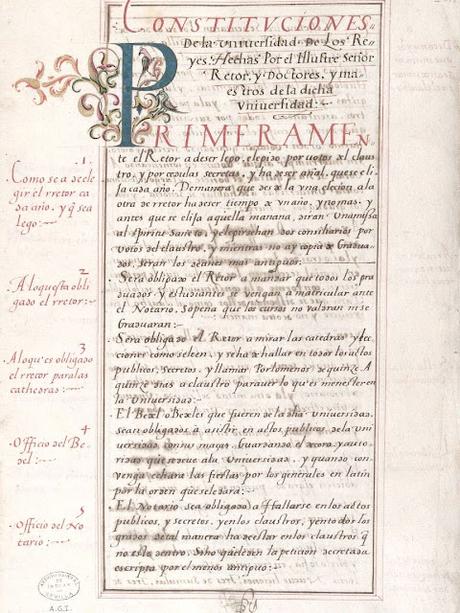 CONSTITVCIONES
De la vniuersidad. De Los Re-
yes: Hechas Por el Illustre Señor
Retor, y Doctores, y ma-
estros de la dicha
Vniuersidad:
PRIMERAMEN
te el Retor a de ser lego, elegido, por uotos del claus
tro, y por cedulas secretas, y ha de ser añal, que se eli
ja cada año. De manera que desde la vna election, a la
otra de rretor ha de ser tiempo de vn año, y no mas. y
antes que se elija aquella manana, diran vna missa
al spiritu sancto, y elegiran dos consiliarios por
votos del claustro, y mientras no ay copia de Gradua-
dos, seran los deanes mas antiguos:
Sera obligado el Retor a mandar que todos los gra
duados, y estudiantes se vengan a matricular ante
el Notario, so pena que los cursos no valdran ni se
Graduaran:
Sera obligado el Retor a mirar las catedras y lec
ciones como se leen, y se ha de hallar en todos los actos
publicos, secretos, y llamar por lo menos de quinze A
quinze dias a claustro para uer lo que es menester en
la Vniuersidad:
El Bedel o Bedeles que fueren de la dha Vniuersidad.
sean obligados a asistir en actos publicos de la vni
uersidad con sus maças Guardando el decoro y auto-
ridad que se deue a la Vniuersidad, y quando con-
uenga echara las fiestas por los generales en latin
por la orden que se le dara:
El Notario sea obligado a Hallarse en los actos
publicos, y secretos, y en los claustros, y en todos los
grados de tal manera ha de estar en los claustros q̃
no este dentro. Sino que le den la peticion decretada
escripta por el menos antiguo:
1
Como se a de ele
gir el rretor ca
da año, y q̃ sea
lego:
2
A lo que esta obli
gado el rretor:
3
A lo que es obligado
el rretor para las
cathedras:
4
Officio del Be
del:
5
Officio del No
tario:
SEVILLA
A.G.I.